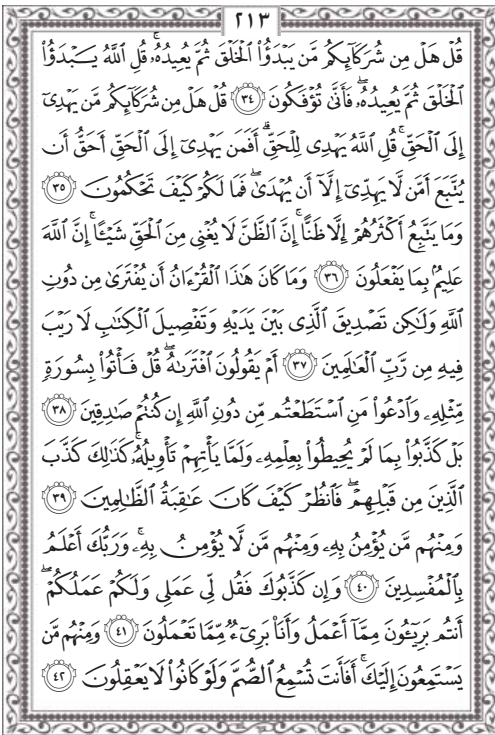 ٢١٣
قُلْ هَلْ مِن شُرَكَآئِكُم مَّن يَبْدَؤُا۟ ٱلْخَلْقَ ثُمَّ يُعِيدُهُۥ ۚ قُلِ ٱللَّهُ يَبْدَؤُا۟
ٱلْخَلْقَ ثُمَّ يُعِيدُهُۥ ۖ فَأَنَّىٰ تُؤْفَكُونَ ٣٤ قُلْ هَلْ مِن شُرَكَآئِكُم مَّن يَهْدِىٓ
إِلَى ٱلْحَقِّ ۚ قُلِ ٱللَّهُ يَهْدِى لِلْحَقِّ ۗ أَفَمَن يَهْدِىٓ إِلَى ٱلْحَقِّ أَحَقُّ أَن
يُتَّبَعَ أَمَّن لَّا يَهِدِّىٓ إِلَّآ أَن يُهْدَىٰ ۖ فَمَا لَكُمْ كَيْفَ تَحْكُمُونَ ٣٥
وَمَا يَتَّبِعُ أَكْثَرُهُمْ إِلَّا ظَنًّا ۚ إِنَّ ٱلظَّنَّ لَا يُغْنِى مِنَ ٱلْحَقِّ شَيْـًٔا ۚ إِنَّ ٱللَّهَ
عَلِيمٌۢ بِمَا يَفْعَلُونَ ٣٦ وَمَا كَانَ هَٰذَا ٱلْقُرْءَانُ أَن يُفْتَرَىٰ مِن دُونِ
ٱللَّهِ وَلَٰكِن تَصْدِيقَ ٱلَّذِى بَيْنَ يَدَيْهِ وَتَفْصِيلَ ٱلْكِتَٰبِ لَا رَيْبَ
فِيهِ مِن رَّبِّ ٱلْعَٰلَمِينَ ٣٧ أَمْ يَقُولُونَ ٱفْتَرَىٰهُ ۖ قُلْ فَأْتُوا۟ بِسُورَةٍ
مِّثْلِهِۦ وَٱدْعُوا۟ مَنِ ٱسْتَطَعْتُم مِّن دُونِ ٱللَّهِ إِن كُنتُمْ صَٰدِقِينَ ٣٨
بَلْ كَذَّبُوا۟ بِمَا لَمْ يُحِيطُوا۟ بِعِلْمِهِۦ وَلَمَّا يَأْتِهِمْ تَأْوِيلُهُۥ ۚ كَذَٰلِكَ كَذَّبَ
ٱلَّذِينَ مِن قَبْلِهِمْ ۖ فَٱنظُرْ كَيْفَ كَانَ عَٰقِبَةُ ٱلظَّٰلِمِينَ ٣٩
وَمِنْهُم مَّن يُؤْمِنُ بِهِۦ وَمِنْهُم مَّن لَّا يُؤْمِنُ بِهِۦ ۚ وَرَبُّكَ أَعْلَمُ
بِٱلْمُفْسِدِينَ ٤٠ وَإِن كَذَّبُوكَ فَقُل لِّى عَمَلِى وَلَكُمْ عَمَلُكُمْ ۖ
أَنتُم بَرِيٓـُٔونَ مِمَّآ أَعْمَلُ وَأَنَا۠ بَرِىٓءٌ مِّمَّا تَعْمَلُونَ ٤١ وَمِنْهُم مَّن
يَسْتَمِعُونَ إِلَيْكَ ۚ أَفَأَنتَ تُسْمِعُ ٱلصُّمَّ وَلَوْ كَانُوا۟ لَا يَعْقِلُونَ ٤٢